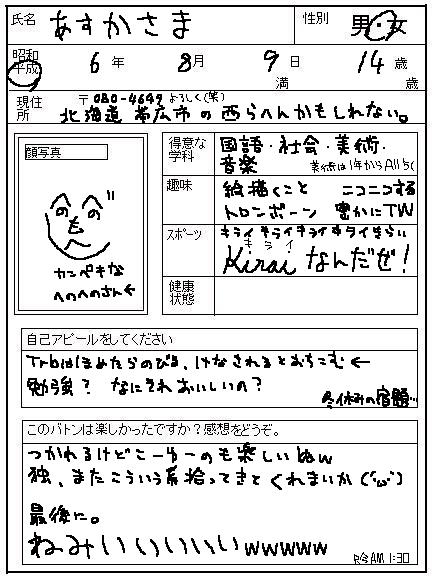 氏名 あすかさま 性別 男・女
昭和
平成 6年 8月 9日 14歳
満 歳
現住所 〒080-4649 よろしく(笑)
北海道 帯広市の西らへんかもしれない。
顔写真
へのへのもへ
カンペキな
へのへのさん←
得意な学科 国語・社会・美術・
音楽 美術は1年からAll5く
趣味 絵描くこと ニコニコする
トロンボーン 密かにTW
スポーツ キライキライキライキライきらい
キライ
Kiraiなんだぜ!
健康状態
自己アピールをしてください
Trbはほめたらのびる、けなされるとおちこむ←
勉強? なにそれおいしいの?
冬休みの宿題…
このバトンは楽しかったですか?感想をどうぞ。
つかれるけどこーゆーのも楽しいねw
独、またこういう系拾ってきてくれまいか
最後に。
ねみいいいいいwwwww
只今AM 1:30